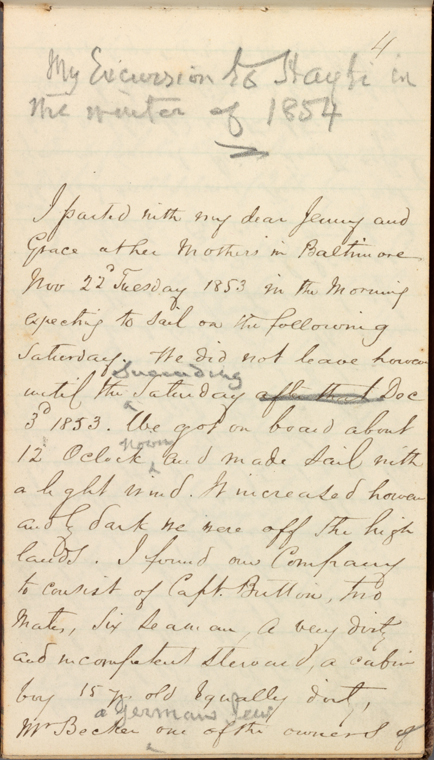 4
My Excursion to Hayti in
the winter of 1854
I parted with my dear Jenny and
Grace at her Mothers in Baltimore
Nov 22d Tuesday 1853 in the Morning
expecting to sail on the following
Saturday. We did not leave however
Succeeding
until the Saturday after that Dec
3d 1853. We got on board about
noon
12 Oclock and made sail with
a light wind. It increased however
and by dark we were off the high
lands. I found our Company
to consist of Capt. Britton, two
Mates, Six seaman, a very dirty
and incompetent steward, a cabin
boy 15 yrs old Equally dirty,
a German Jew
Mr Becker one of the owners of